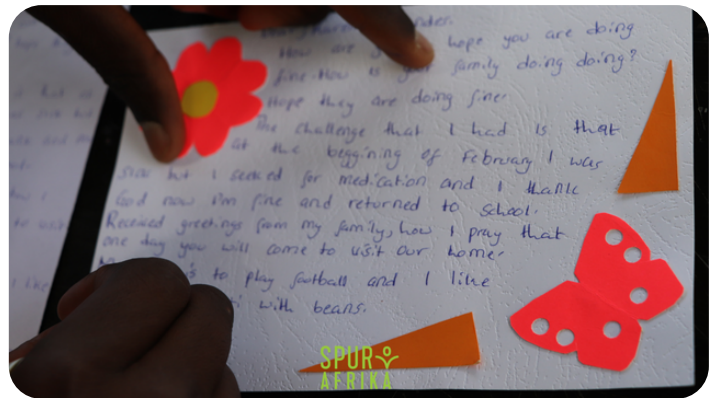 How are hope you are doing
fine. How is your family doing doing?
Hope they are doing fine.
The challenge that I had is that
at the beggining of February I was
sick but I seeked for medication and I thank
God now I'm fine and returned to school.
Received greetings from my family, how I pray that
one day you will come to visit our home.
to play football and I like
with beans.
SPUR
AFRIKA